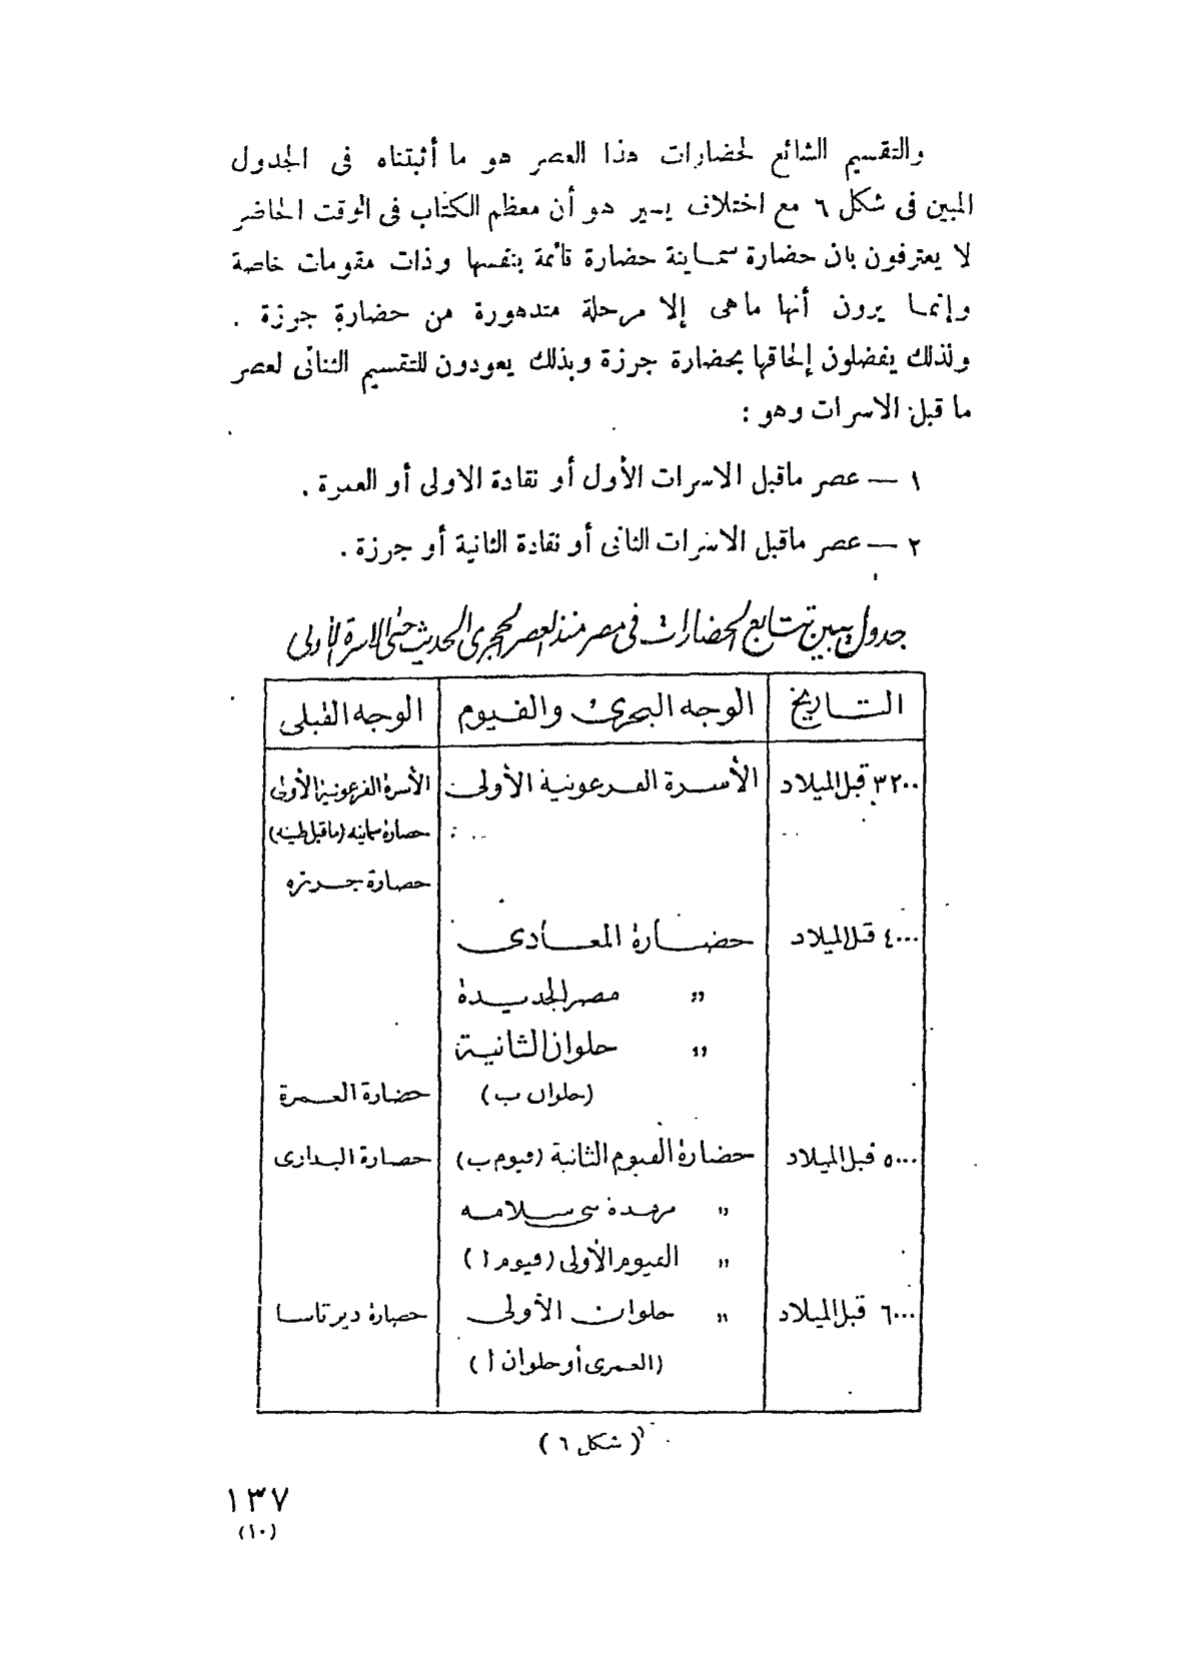 والتقسيم الشائع لحضارات هذا العصر هو ما أثبتناه فى الجدول
المبين فى شكل ٦ مع اختلاف يسير هو أن معظم الكتاب فى الوقت الحاضر
لا يعترفون بان حضارة سماينة حضارة قائمة بنفسها وذات مقومات خاصة
وإنما يرون أنها ماهى إلا مرحلة متدهورة من حضارة جرزة .
ولذلك يفضلون إلحاقها بحضارة جرزة وبذلك يعودون للتقسيم الثنائى لعصر
ما قبل الاسرات وهو :
١ — عصر ماقبل الاسرات الأول أو نقادة الاولى أو العمرة .
٢ — عصر ماقبل الاسرات الثانى أو نقادة الثانية أو جرزة .
جدول يبين تتابع الحضارات فى مصر منذ العصر الحجرى الحديث حتى الاسرة الأولى
التاريخ الوجه البحرى والفيوم الوجه القبلى
٣٢٠٠ قبل الميلاد الأسرة الفرعونية الأولى الأسرة الفرعونية الأولى
حضارة سماينه (ماقبل طينه)
حضارة جرزه
٤٠٠٠ قبل الميلاد حضارة المعادى
״ مصر الجديدة
״ حلوان الثانية
(حلوان ب) حضارة العمرة
٥٠٠٠ قبل الميلاد حضارة الفيوم الثانية (فيوم ب) حضارة البدارى
״ مرمدة بنى سلامه
״ الفيوم الأولى (فيوم أ)
٦٠٠٠ قبل الميلاد ״ حلوان الأولى حضارة دير تاسا
(العمرى أو حلوان أ)
(شكل ٦)
١٣٧
(١٠)